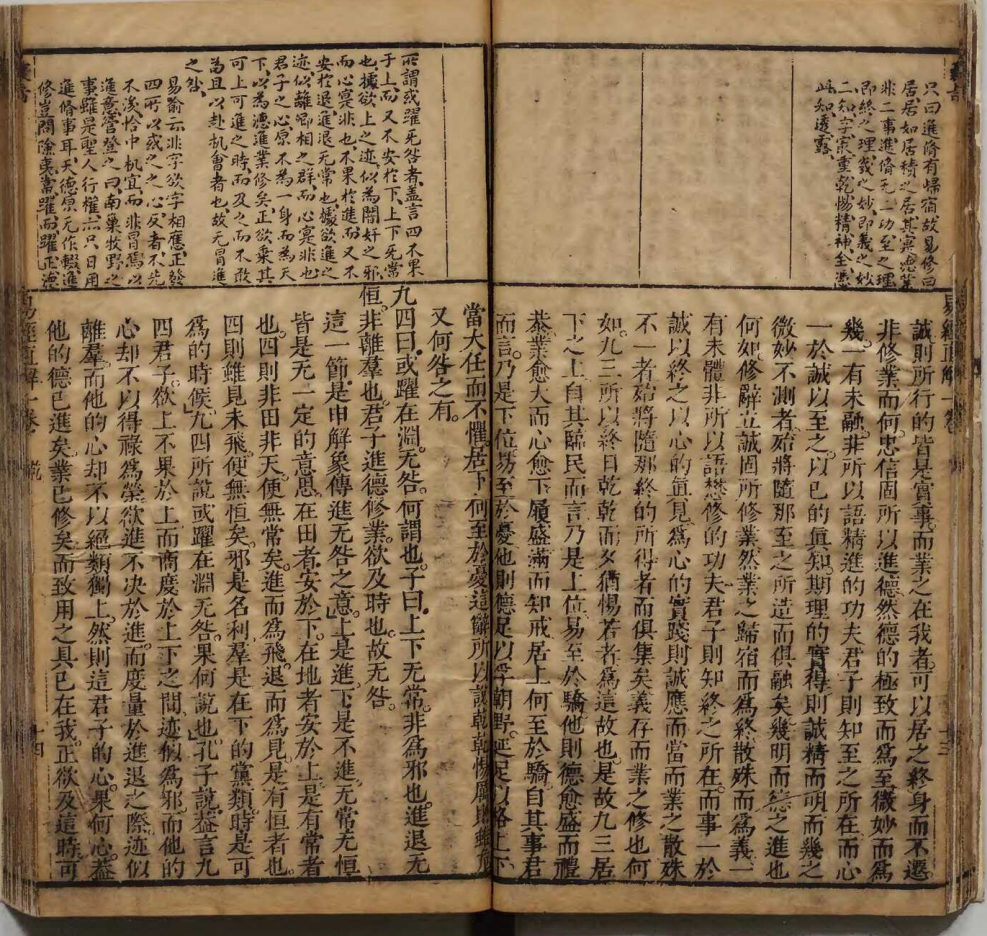 只曰進脩有歸宿故易修曰
居居如居積之居其實德業
非二事進脩无二功至之理
即終之理幾之妙即義之妙
二知字最重乾惕精神全憑
此知透露
誠則所行的皆是實事而業之在我者可以居之終身而不遷
非修業而何忠信固所以進德然德的極致而爲至微妙而爲
幾一有未融非所以語精進的功夫君子則知至之所在而心
一於誠以至之以已的眞知期理的實得則誠精而明而幾之
微妙不測者殆將隨那至之所造而俱融矣幾明而德之進也
何如修辭立誠固所修業然業之歸宿而爲終散殊而爲義一
有未體非所以語懋修的功夫君子則知終之所在而事一於
誠以終之以心的眞見爲心的實踐則誠應而當而業之散殊
不一者殆將隨那終的所得者而俱集矣義存而業之修也何
如九三所以終日乾乾而夕猶惕若者爲這故也是故九三居
下之上自其臨民而言乃是上位易至於驕他則德愈盛而禮
恭業愈大而心愈下履盛滿而知戒居上何至於驕自其事君
而言乃是下位易至於憂他則德足以孚朝野延足以格上下
所謂或躍无咎者蓋言四不果
于上而又不安於下上下无常
也據欲上之迹似為闇奸之邪
而心寔非也不果於進而又不
安於退進退无常也據欲進之
迹似離邺相之群而心寔非也
君子之心原不為一身而為天
下以為德進業修矣正欲乗其
可上可進之時而及之而不敢
苟且以赴机會者也故无冒進
之咎
易喻云非字欲字相應正發
四所以或之之心反者不先
不後恰中机宜而非冒為以
進意嘗登之曰南巢牧野之
事雖是聖人行權亦只日用
進脩事耳天德原无作輟進
脩豈間險夷當躍而躍正德
當大任而不懼居下何至於憂這辭所以說乾乾惕厲
又何咎之有
九四曰或躍在淵无咎何謂也子曰上下无常非爲邪也進退无
恒非離羣也君子進德修業欲及時也故无咎
這一節是申解象傳進无咎之意上是進下是不進无常无恒
皆是无一定的意思在田者安於下在地者安於上是有常者
也四則非田非天便無常矣進而爲飛退而爲見是有恒者也
四則雖見未飛便無恒矣邪是名利羣是在下的黨類時是可
爲的時候九四所說或躍在淵无咎果何說也孔子說蓋言九
四君子欲上不果於上而商度於上下之間迹似爲邪而他的
心却不以得祿爲榮欲進不决於進而度量於進退之際迹似
離羣而他的心却不以絕類獨上然則這君子的心果何心蓋
他的德已進矣業已修矣而致用之具已在我正欲及這時可
易經直解一卷
十四